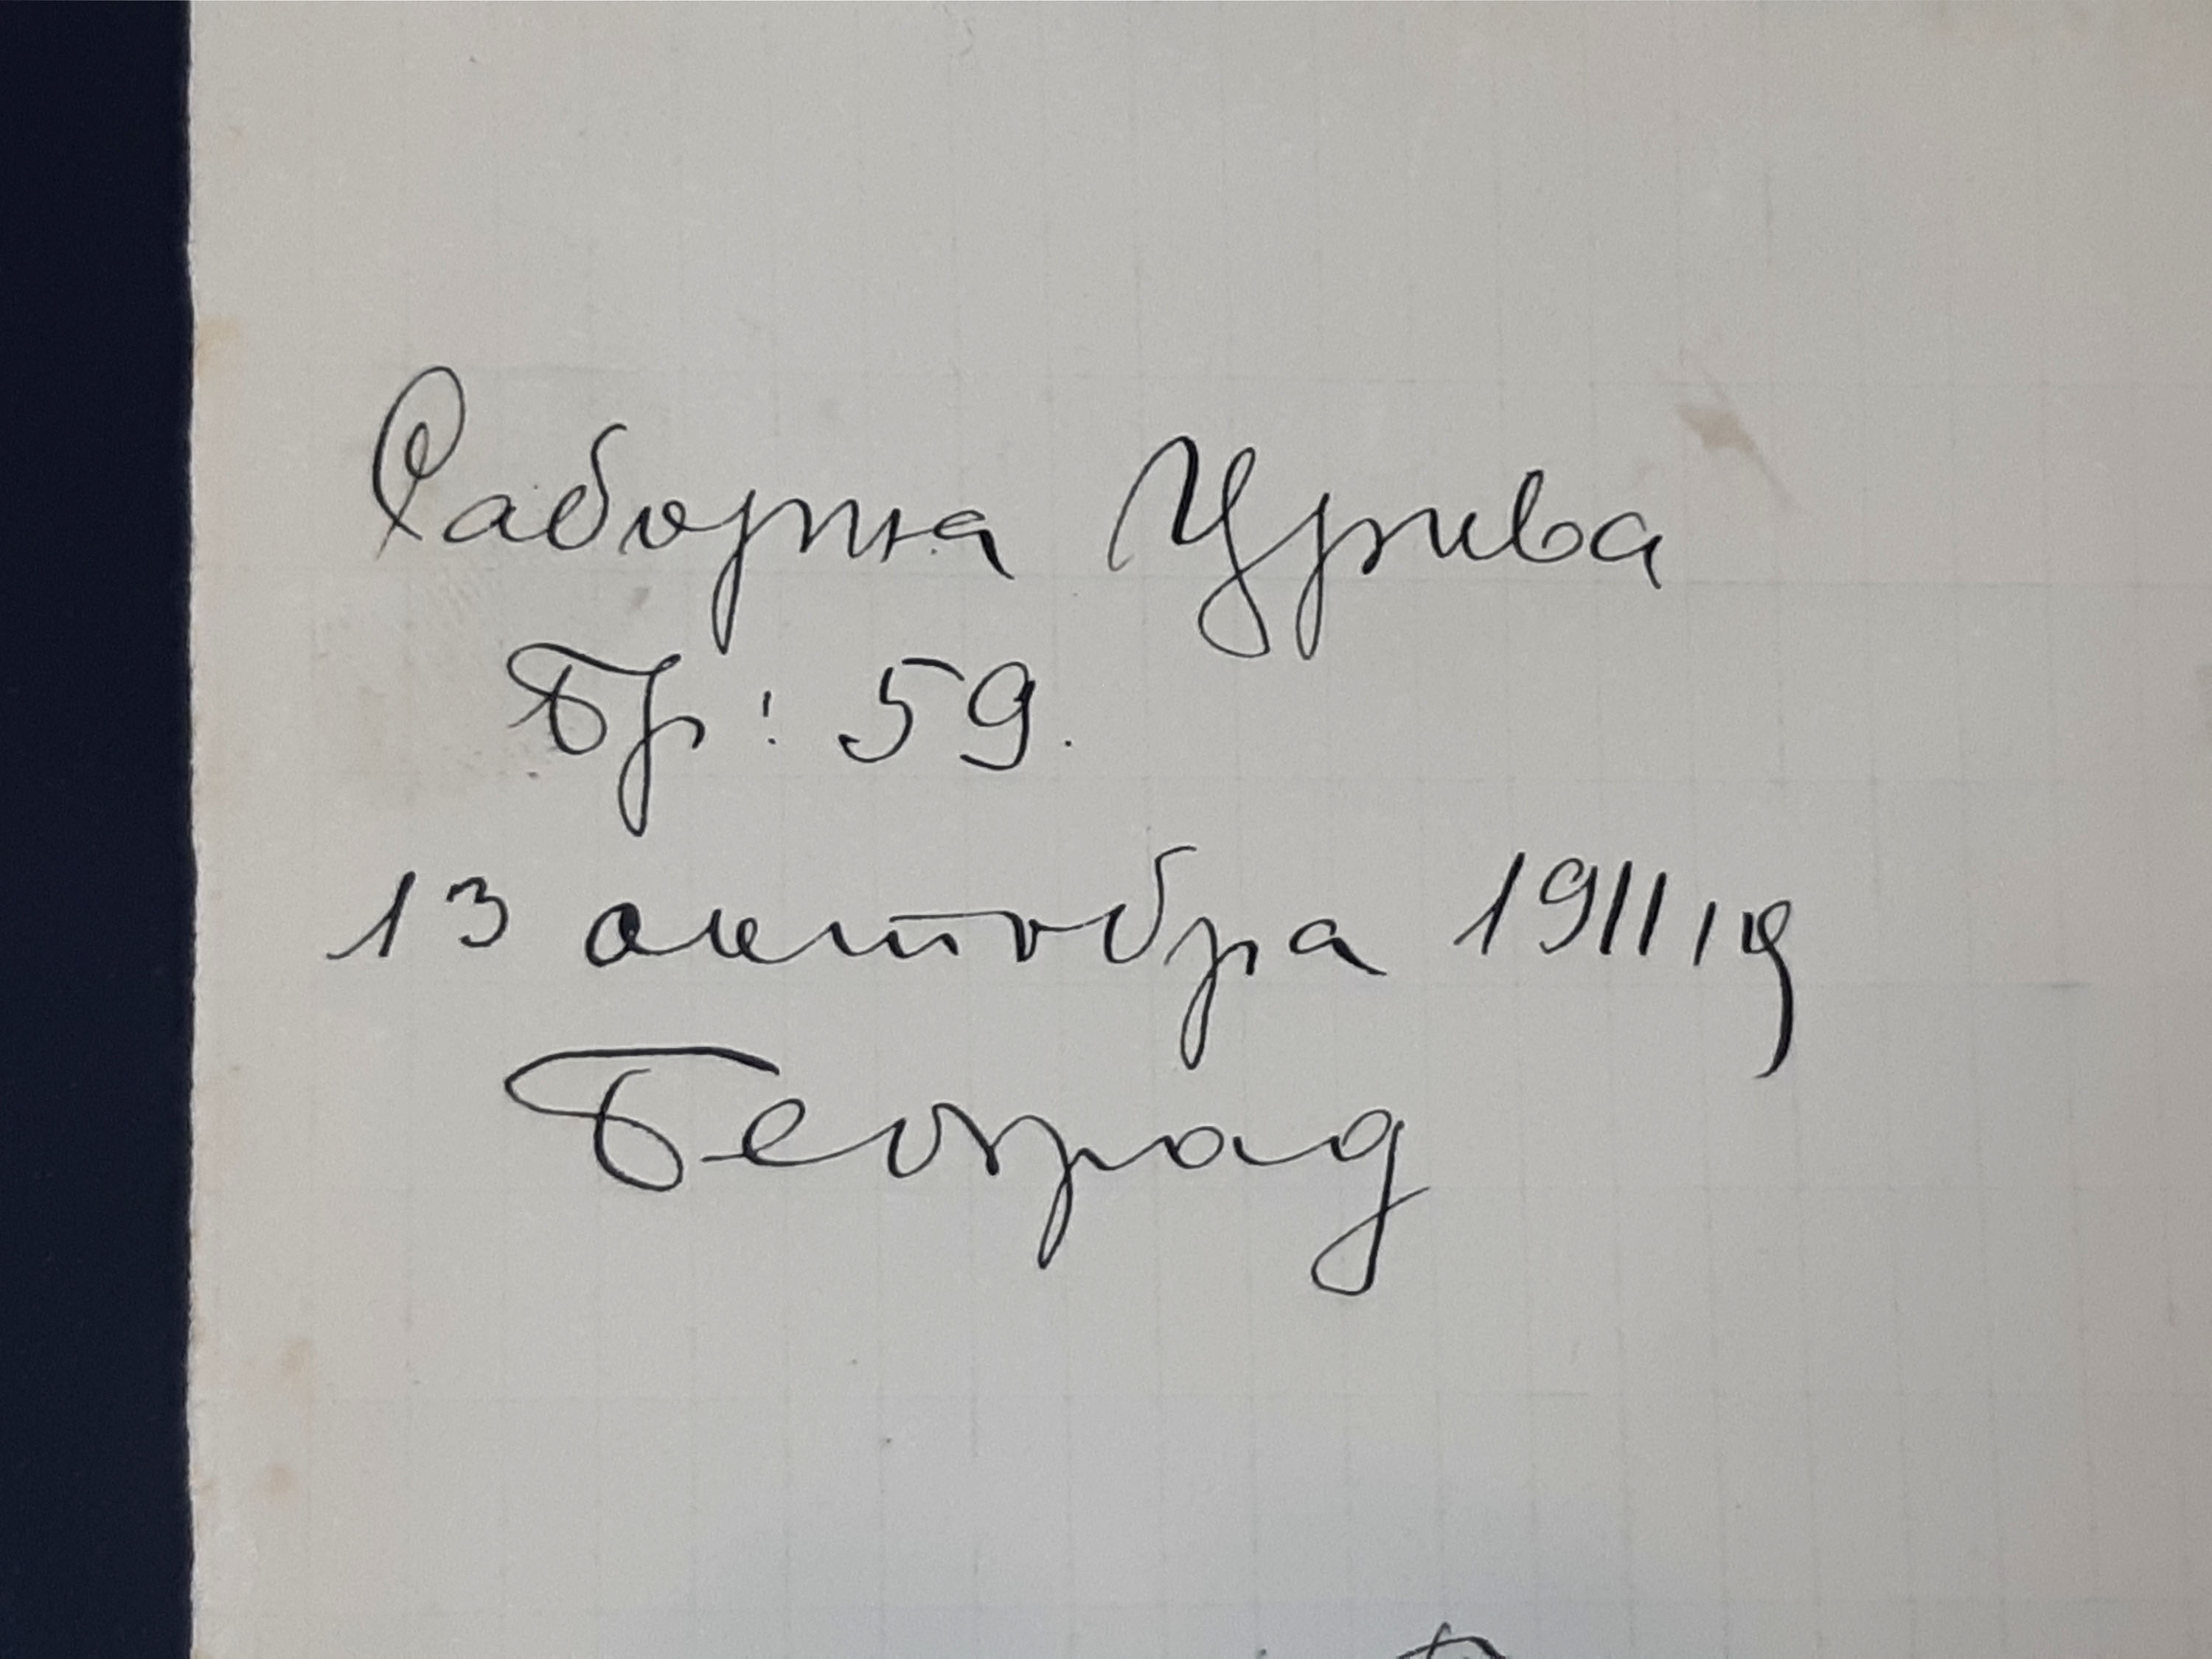 Саборна Црква
Бр: 59.
13 октобра 1911 г
Београд